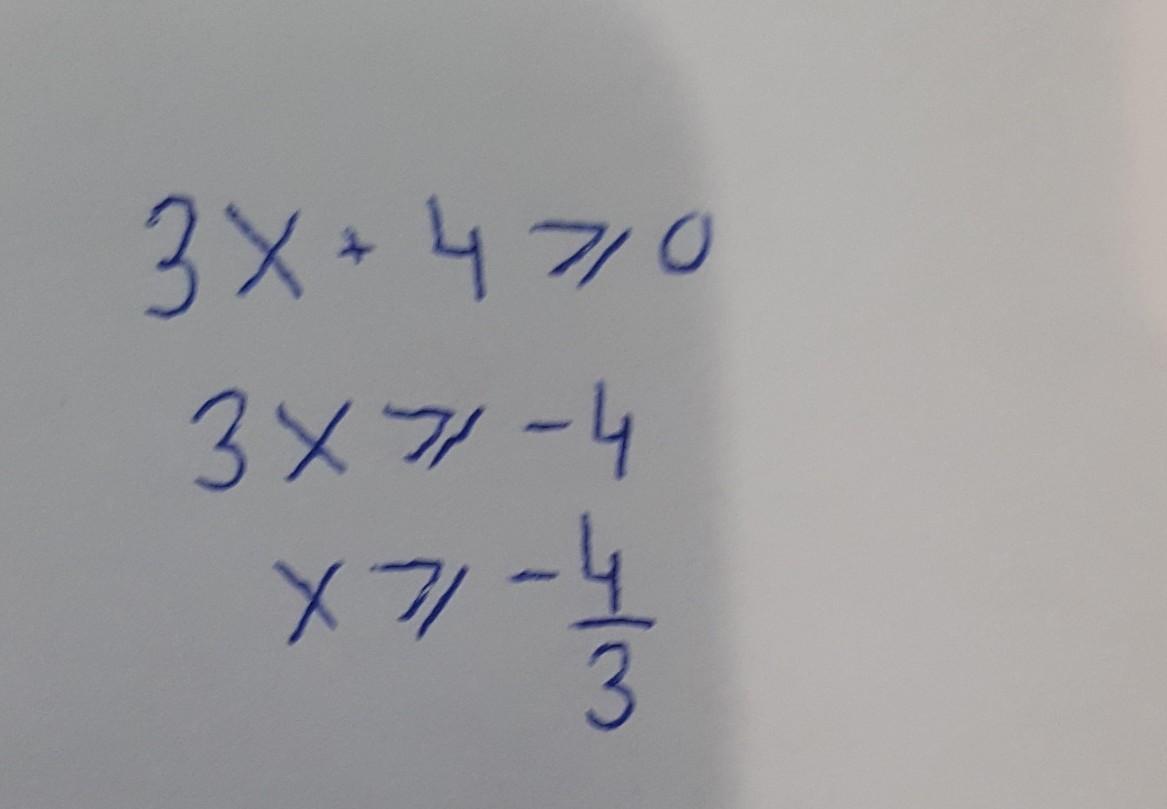 3x + 4 ⩾ 0
3x ⩾ -4
x ⩾ -4/3